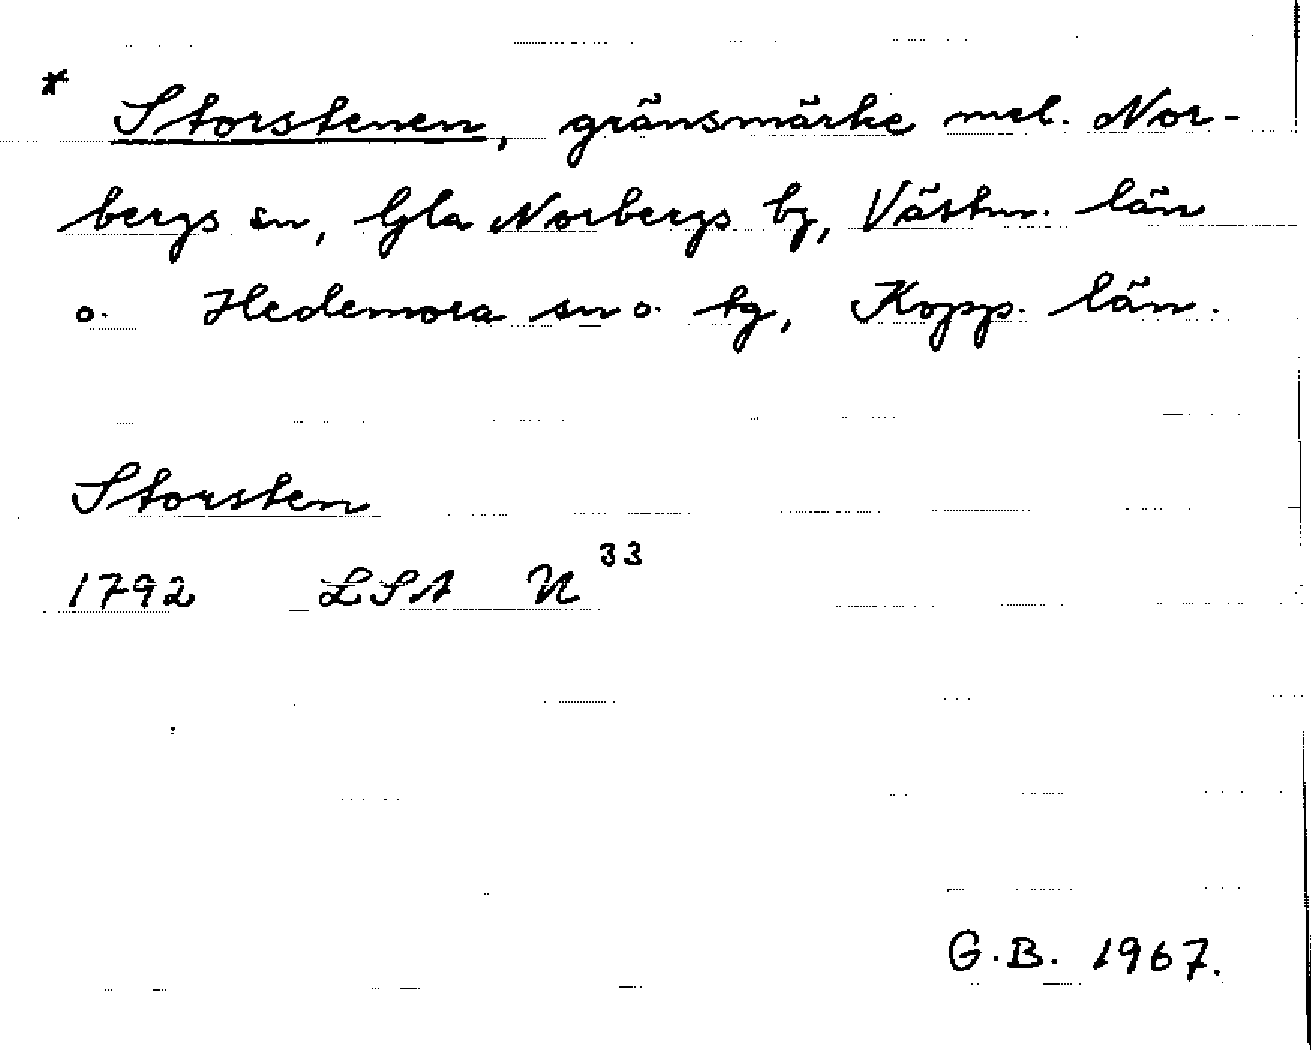 * Storstenen, gränsmärke mel. Nor-
bergs sn, Gla Norbergs bg, Västm. län
o. Hedemora sn o. tg, Kopp. län.
Storsten
1792 LSA U 33
G.B. 1967.